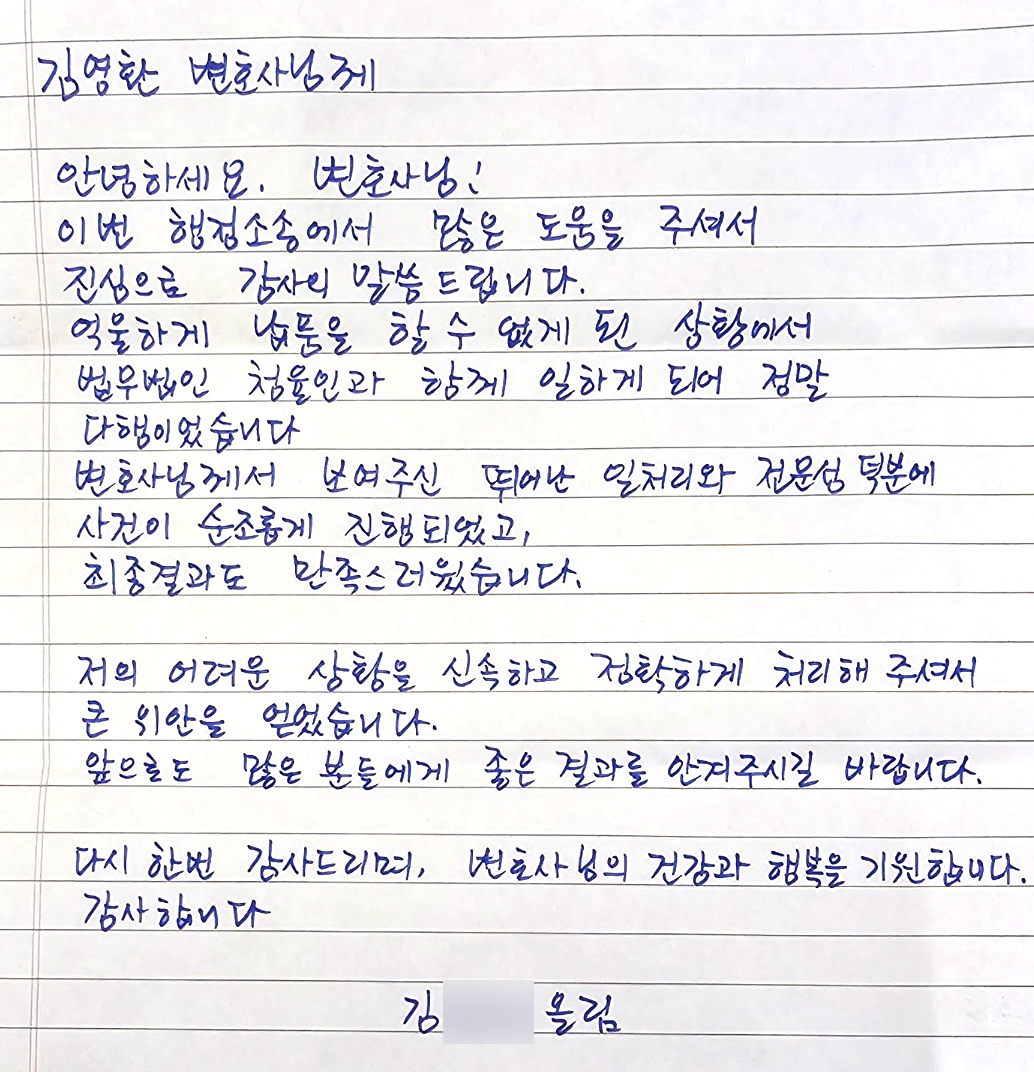 김영환 변호사님께
안녕하세요. 변호사님!
이번 행정소송에서 많은 도움을 주셔서
진심으로 감사의 말씀 드립니다.
억울하게 납품을 할 수 없게 된 상황에서
법무법인 청율인과 함께 일하게 되어 정말
다행이었습니다
변호사님께서 보여주신 뛰어난 일처리와 전문성 덕분에
사건이 순조롭게 진행되었고,
최종결과도 만족스러웠습니다.
저의 어려운 상황을 신속하고 정확하게 처리해 주셔서
큰 위안을 얻었습니다.
앞으로도 많은 분들에게 좋은 결과를 안겨주시길 바랍니다.
다시 한번 감사드리며, 변호사님의 건강과 행복을 기원합니다.
감사합니다
김 올림